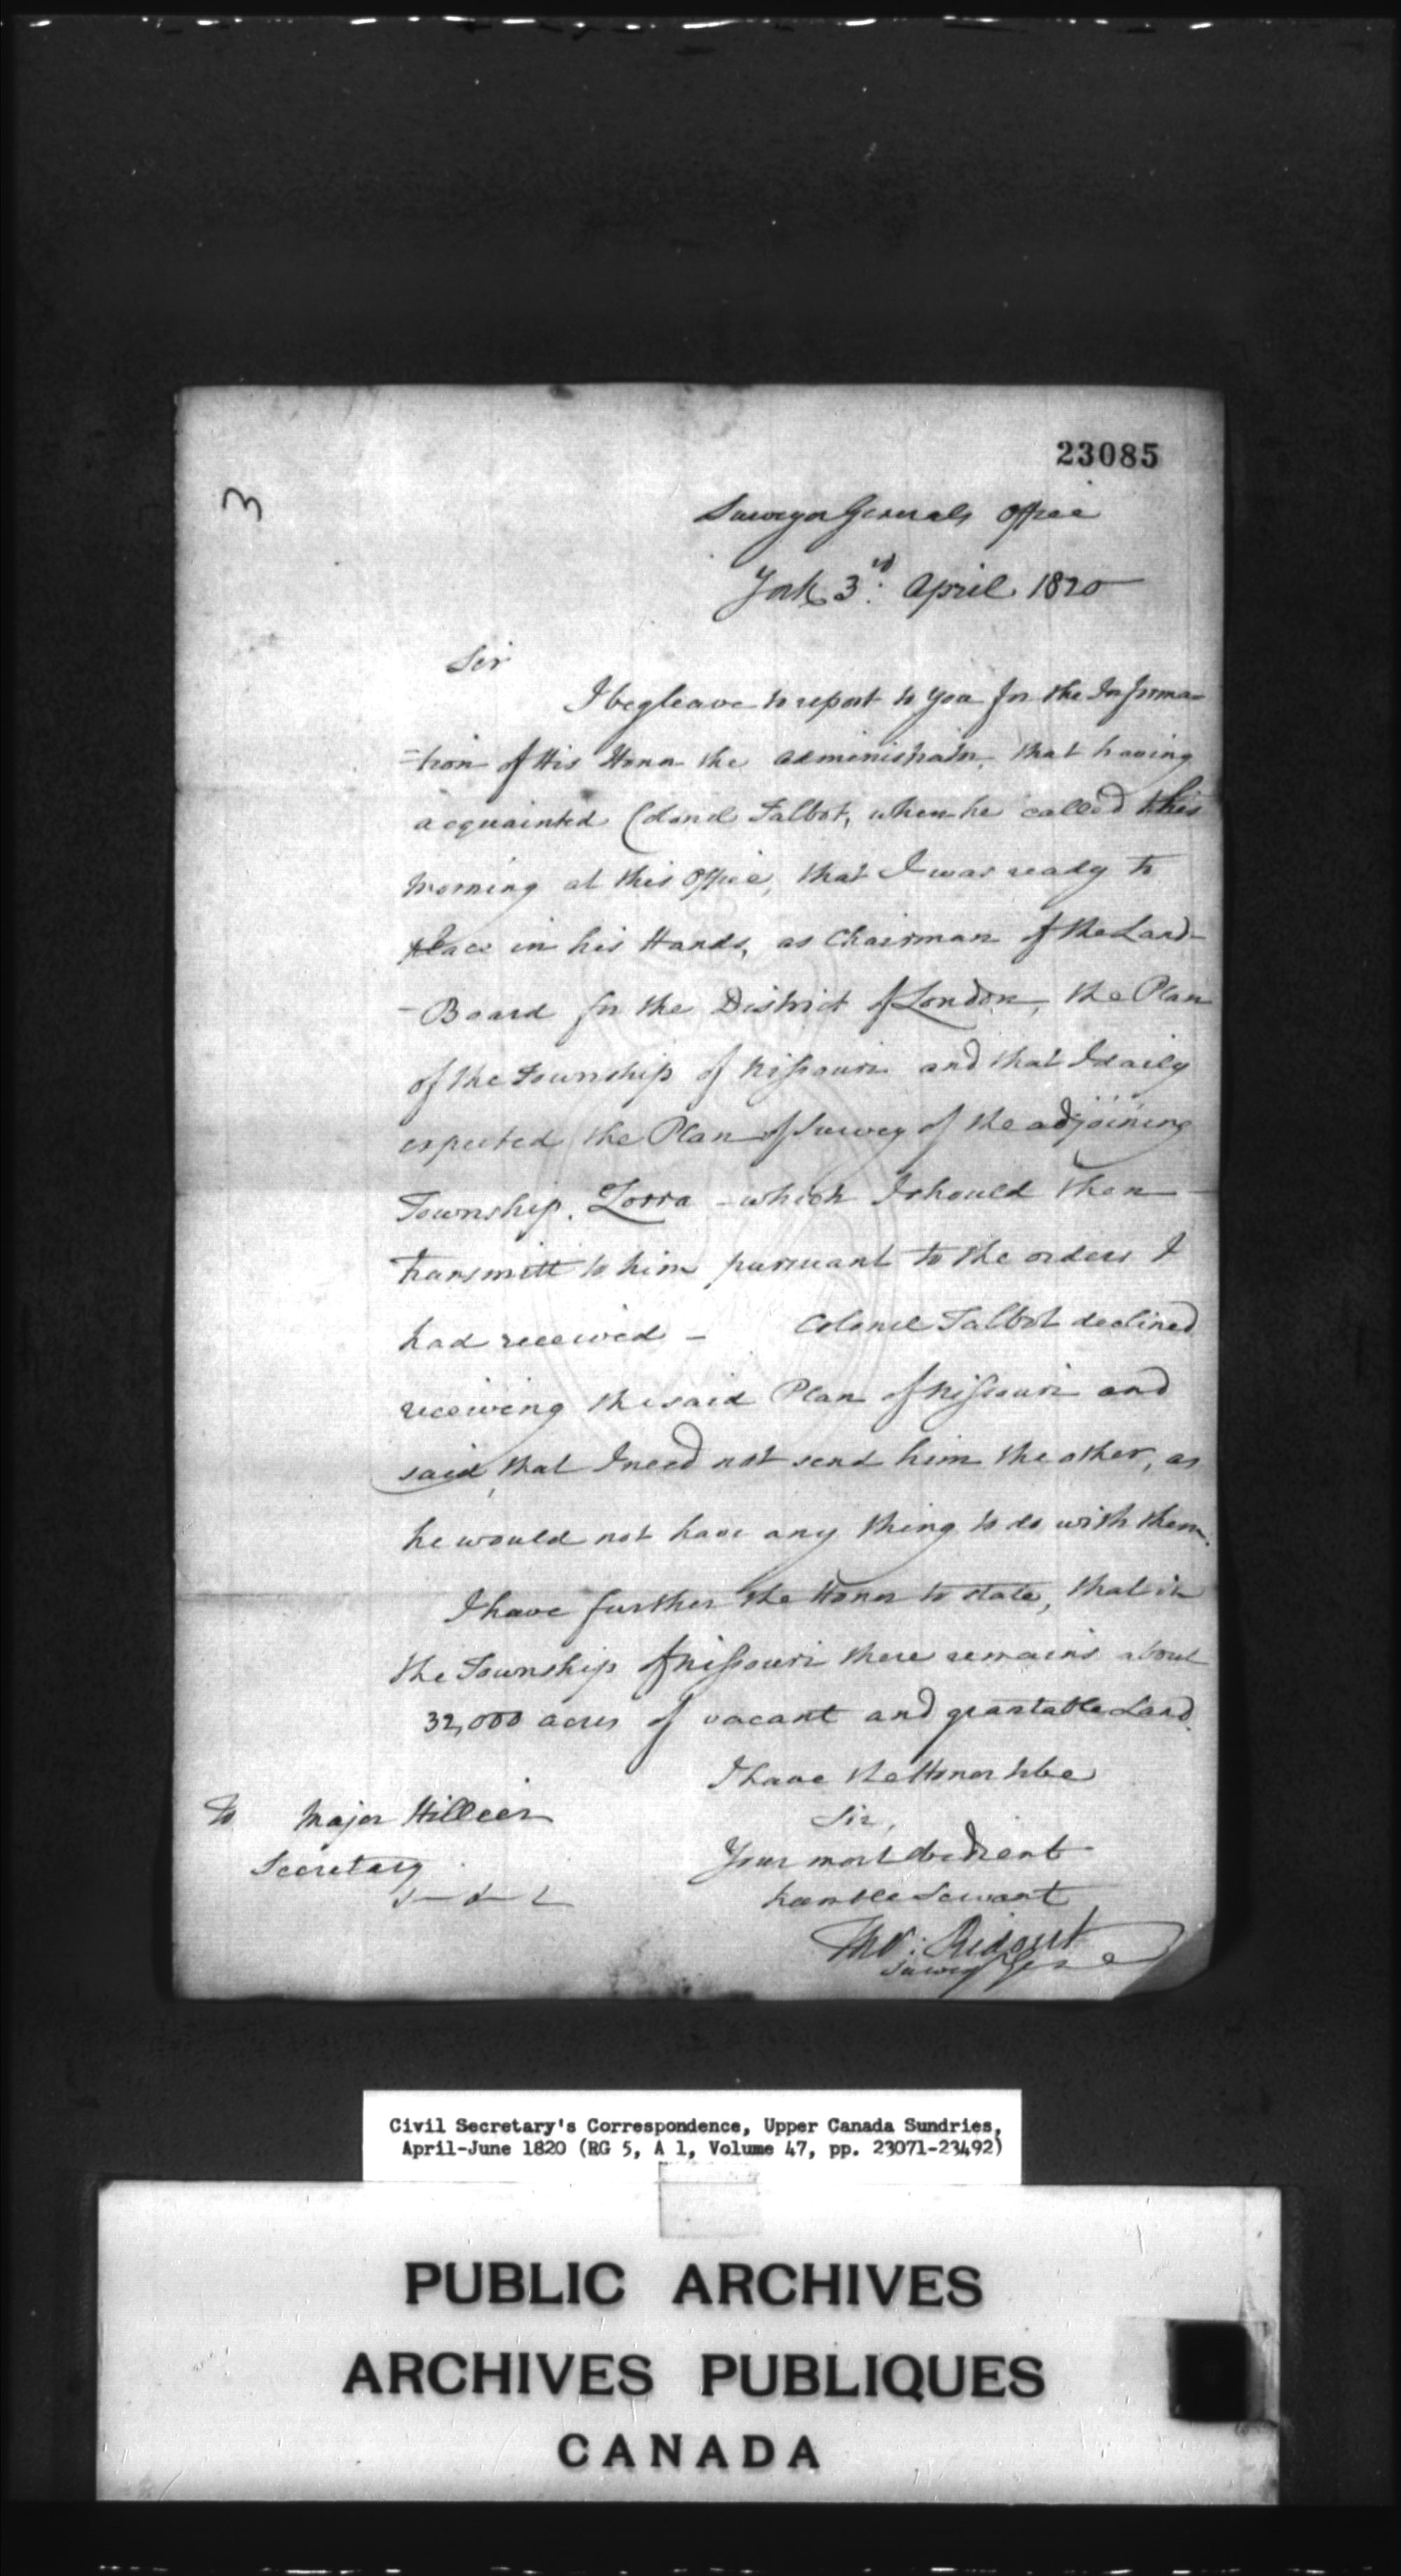 23085
3
Surveyor Generals Office
York 3rd. April 1820
Sir
I beg leave to report to you for the Informa=
=tion of His Honor the Administrator, that having
acquainted Colonel Talbot, when he called this
morning at this Office, that I was ready to
place in his Hands, as Chairman of the Land-
-Board for the District of London, the Plan
of the Township of Nissouri and that I daily
expected the Plan of Survey of the adjoining
Township. Zorra - which I should then -
transmitt to him pursuant to the orders I
had received - Colonel Talbot declined
receiving the said Plan of Nissouri and
said, that I need not send him the other, as
he would not have any thing to do with them.
I have further the Honor to state, that in
the Township of Nissouri there remains about
32,000 acres of vacant and grantable Land.
I have the Honor to be
To Major Hillier
Sir,
Secretary
Your most obedient
humble Servant
Tho: Ridout
Survey Gen
Civil Secretary's Correspondence, Upper Canada Sundries,
April-June 1820 (RG 5, A 1, Volume 47, pp. 23071-23492)
PUBLIC ARCHIVES
ARCHIVES PUBLIQUES
CANADA